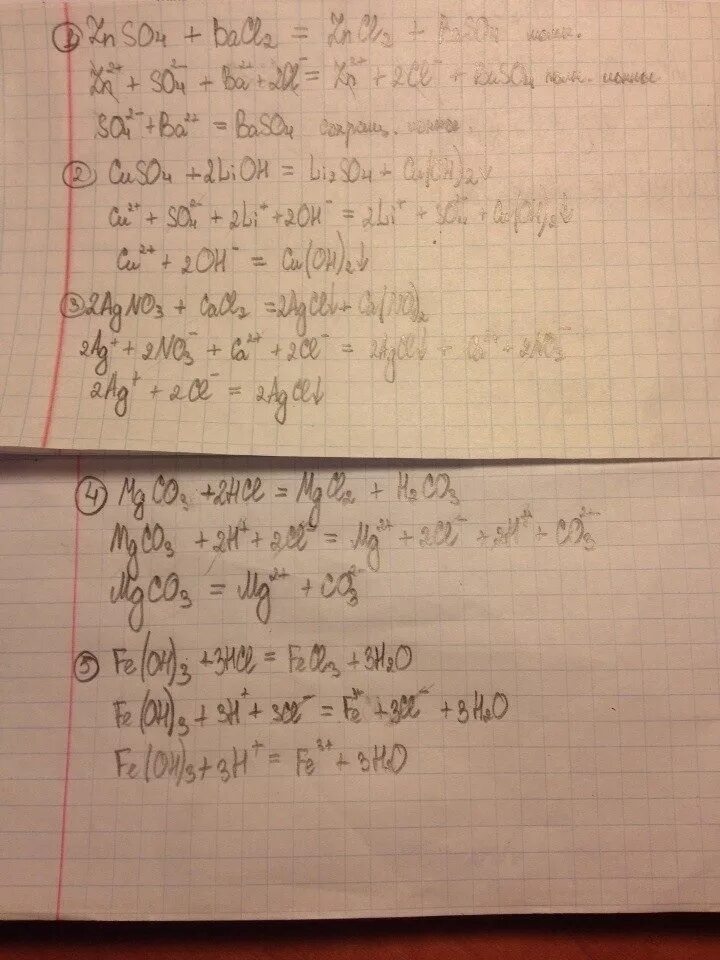 1 ZnSO4 + BaCl2 = ZnCl2 + BaSO4
Zn²⁺ + SO4²⁻ + Ba²⁺ + 2Cl⁻ = Zn²⁺ + 2Cl⁻ + BaSO4 полн. ионны
SO4²⁻ + Ba²⁺ = BaSO4 сокращ.
2 CuSO4 + 2LiOH = Li2SO4 + Cu(OH)2↓
Cu²⁺ + SO4²⁻ + 2Li⁺ + 2OH⁻ = 2Li⁺ + SO4²⁻ + Cu(OH)2↓
Cu²⁺ + 2OH⁻ = Cu(OH)2↓
3 2AgNO3 + CaCl2 = 2AgCl↓ + Ca(NO)2
2Ag⁺ + 2NO3⁻ + Ca²⁺ + 2Cl⁻ = 2AgCl↓ + Ca²⁺ + 2NO3⁻
2Ag⁺ + 2Cl⁻ = 2AgCl↓
4 MgCO3 + 2HCl = MgCl2 + H2CO3
MgCO3 + 2H⁺ + 2Cl⁻ = Mg²⁺ + 2Cl⁻ + 2H⁺ + CO3²⁻
MgCO3 = Mg²⁺ + CO3²⁻
5 Fe(OH)3 + 3HCl = FeCl3 + 3H2O
Fe(OH)3 + 3H⁺ + 3Cl⁻ = Fe³⁺ + 3Cl⁻ + 3H2O
Fe(OH)3 + 3H⁺ = Fe³⁺ + 3H2O